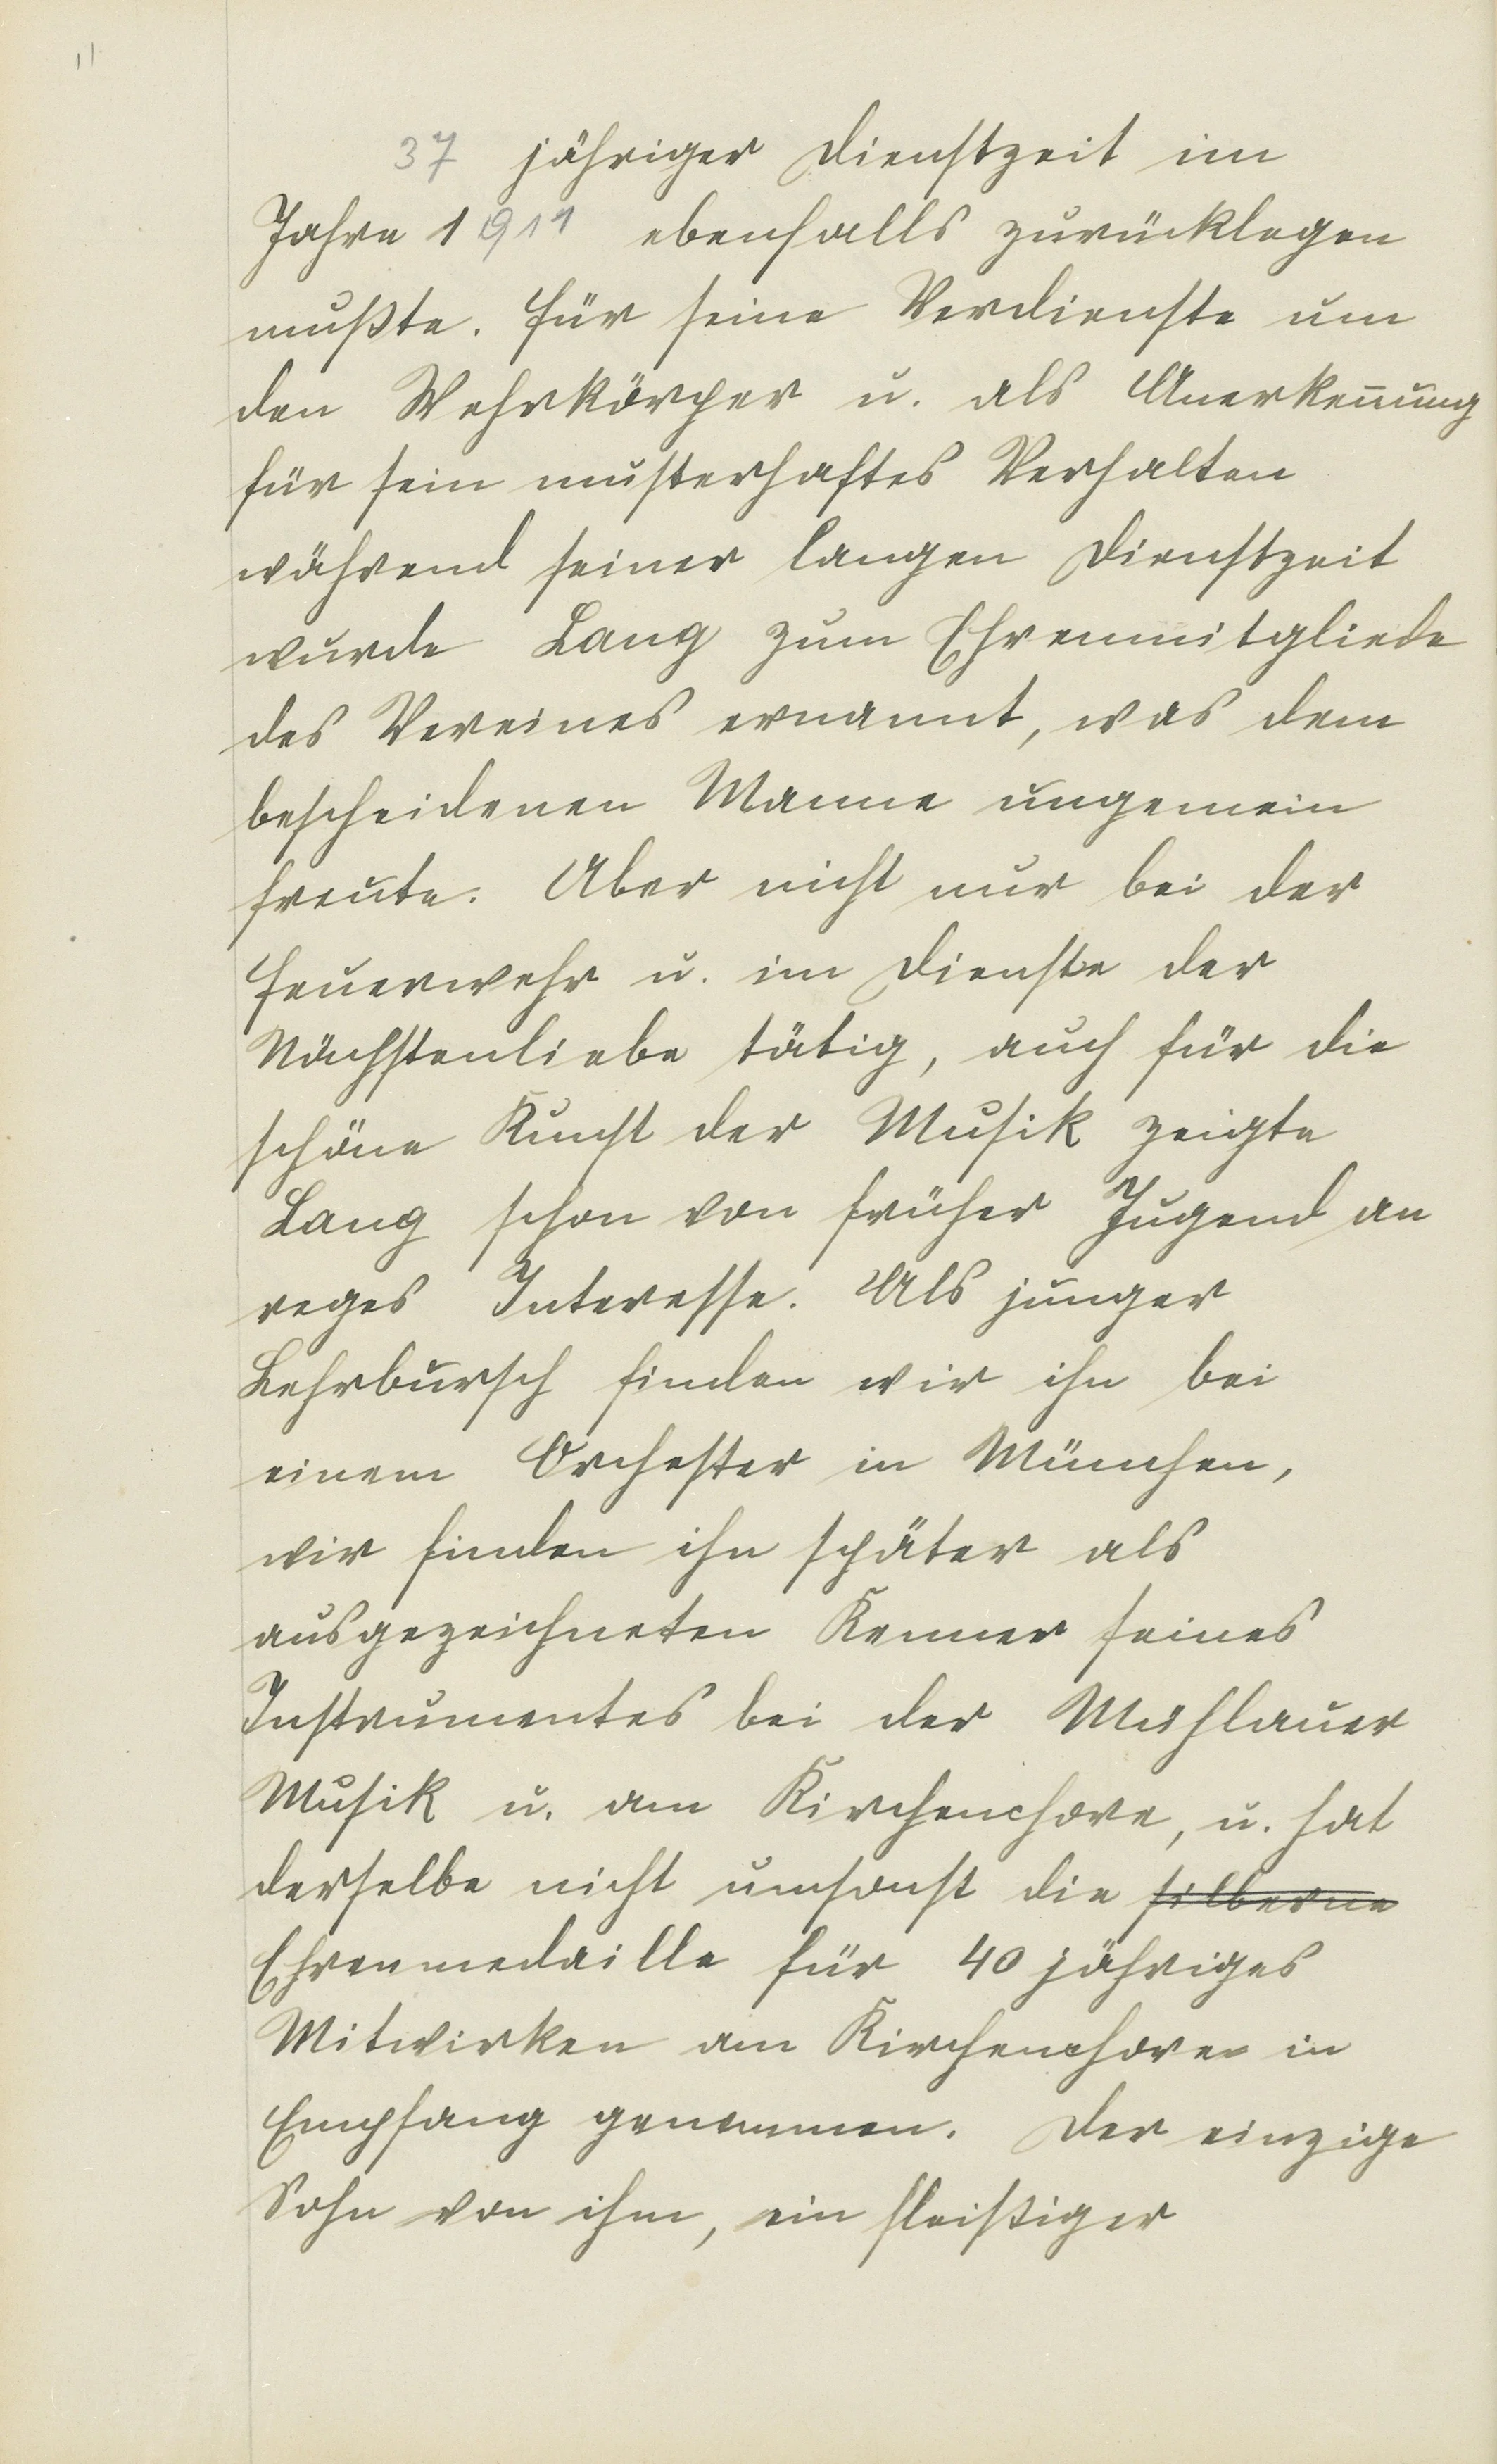 11
37 jähriger Dienstzeit im
Jahre 1911 ebenfalls zurücklegen
mußte. Für seine Verdienste um
den Wehrkörper u. als Anerkennung
für sein musterhaftes Verhalten
während seiner langen Dienstzeit
wurde Lang zum Ehrenmitgliede
des Vereines ernannt, was dem
bescheidenen Manne ungemein
freute. Aber nicht nur bei der
Feuerwehr u. im Dienste der
Nächstenliebe tätig, auch für die
schöne Kunst der Musik zeigte
Lang schon von früher Jugend an
reges Interesse. Als junger
Lehrbursch finden wir ihn bei
einem Orchester in München,
wir finden ihn später als
ausgezeichneten Kenner seines
Instrumentes bei der Mühlauer
Musik u. am Kirchenchore, u. hat
derselbe nicht umsonst die silberne
Ehrenmedaille für 40 jähriges
Mitwirken am Kirchenchore in
Empfang genommen. Der einzige
Sohn von ihm, ein fleißiger